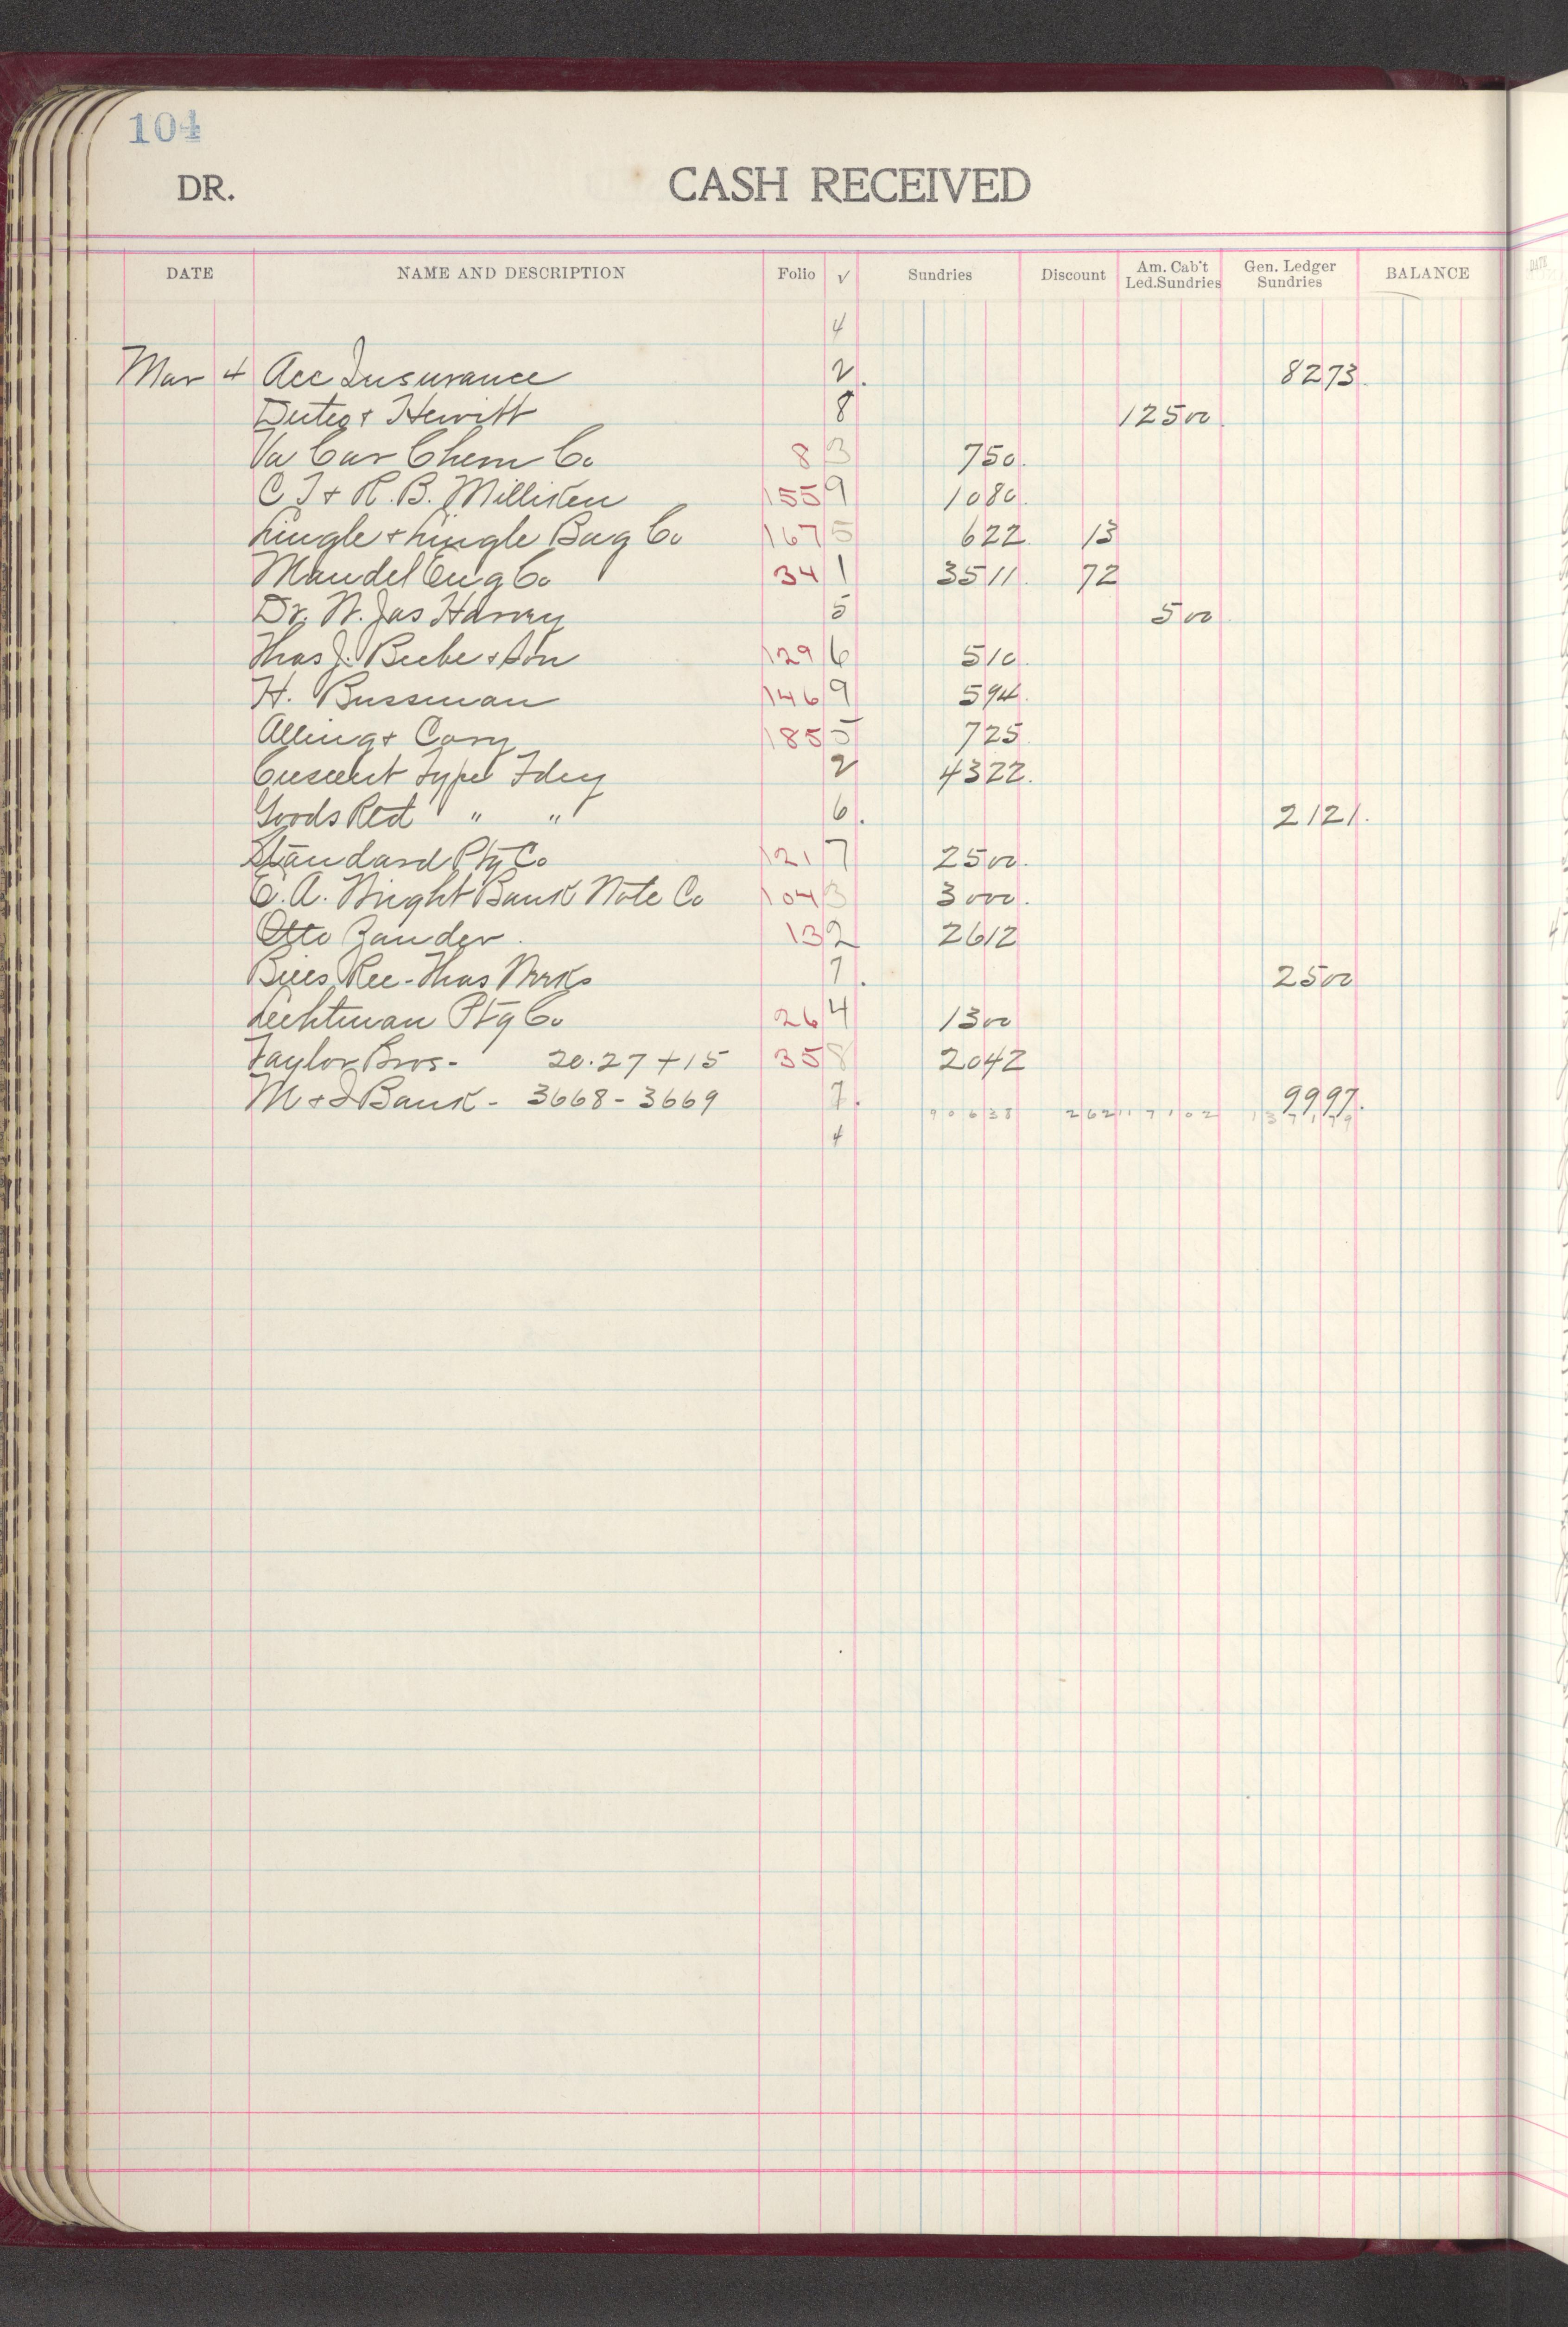 104
DR. CASH RECEIVED
DATE NAME AND DESCRIPTION Folio √ Sundries Discount Am. Cab't Led.Sundries Gen. Ledger Sundries BALANCE
4
Mar 4 Acc Insurance 2. 8273.
& Hewitt 8 12500.
Va Car Chem Co 8 3 750.
C T & R. B. Milliken 155 9 1080.
Lingle & Lingle Bag Co 167 5 622. 13
Mandel Eng Co 34 1 3511. 72
Dr. W. Jas Harvey 5 500
Thos J. Beebe & Son 129 6 510.
H. Bussman 146 9 594.
Alling & Cory 185 5 725
Crescent Type Fdry 2 4322.
Goods Retd " " 6. 2121.
Standard Ptg Co 121 7 2500.
E. A. Wright Bank Note Co 104 3 3000.
Otto Zander. 13 2 2612
Bills Rec - Thos Works 7. 2500
Lechtman Ptg Co 26 4 1300
Taylor Bros - 20.27 + 15 35 8 2042
M & I Bank - 3668 - 3669 7. 9997.
90638 262 117102 137179
4